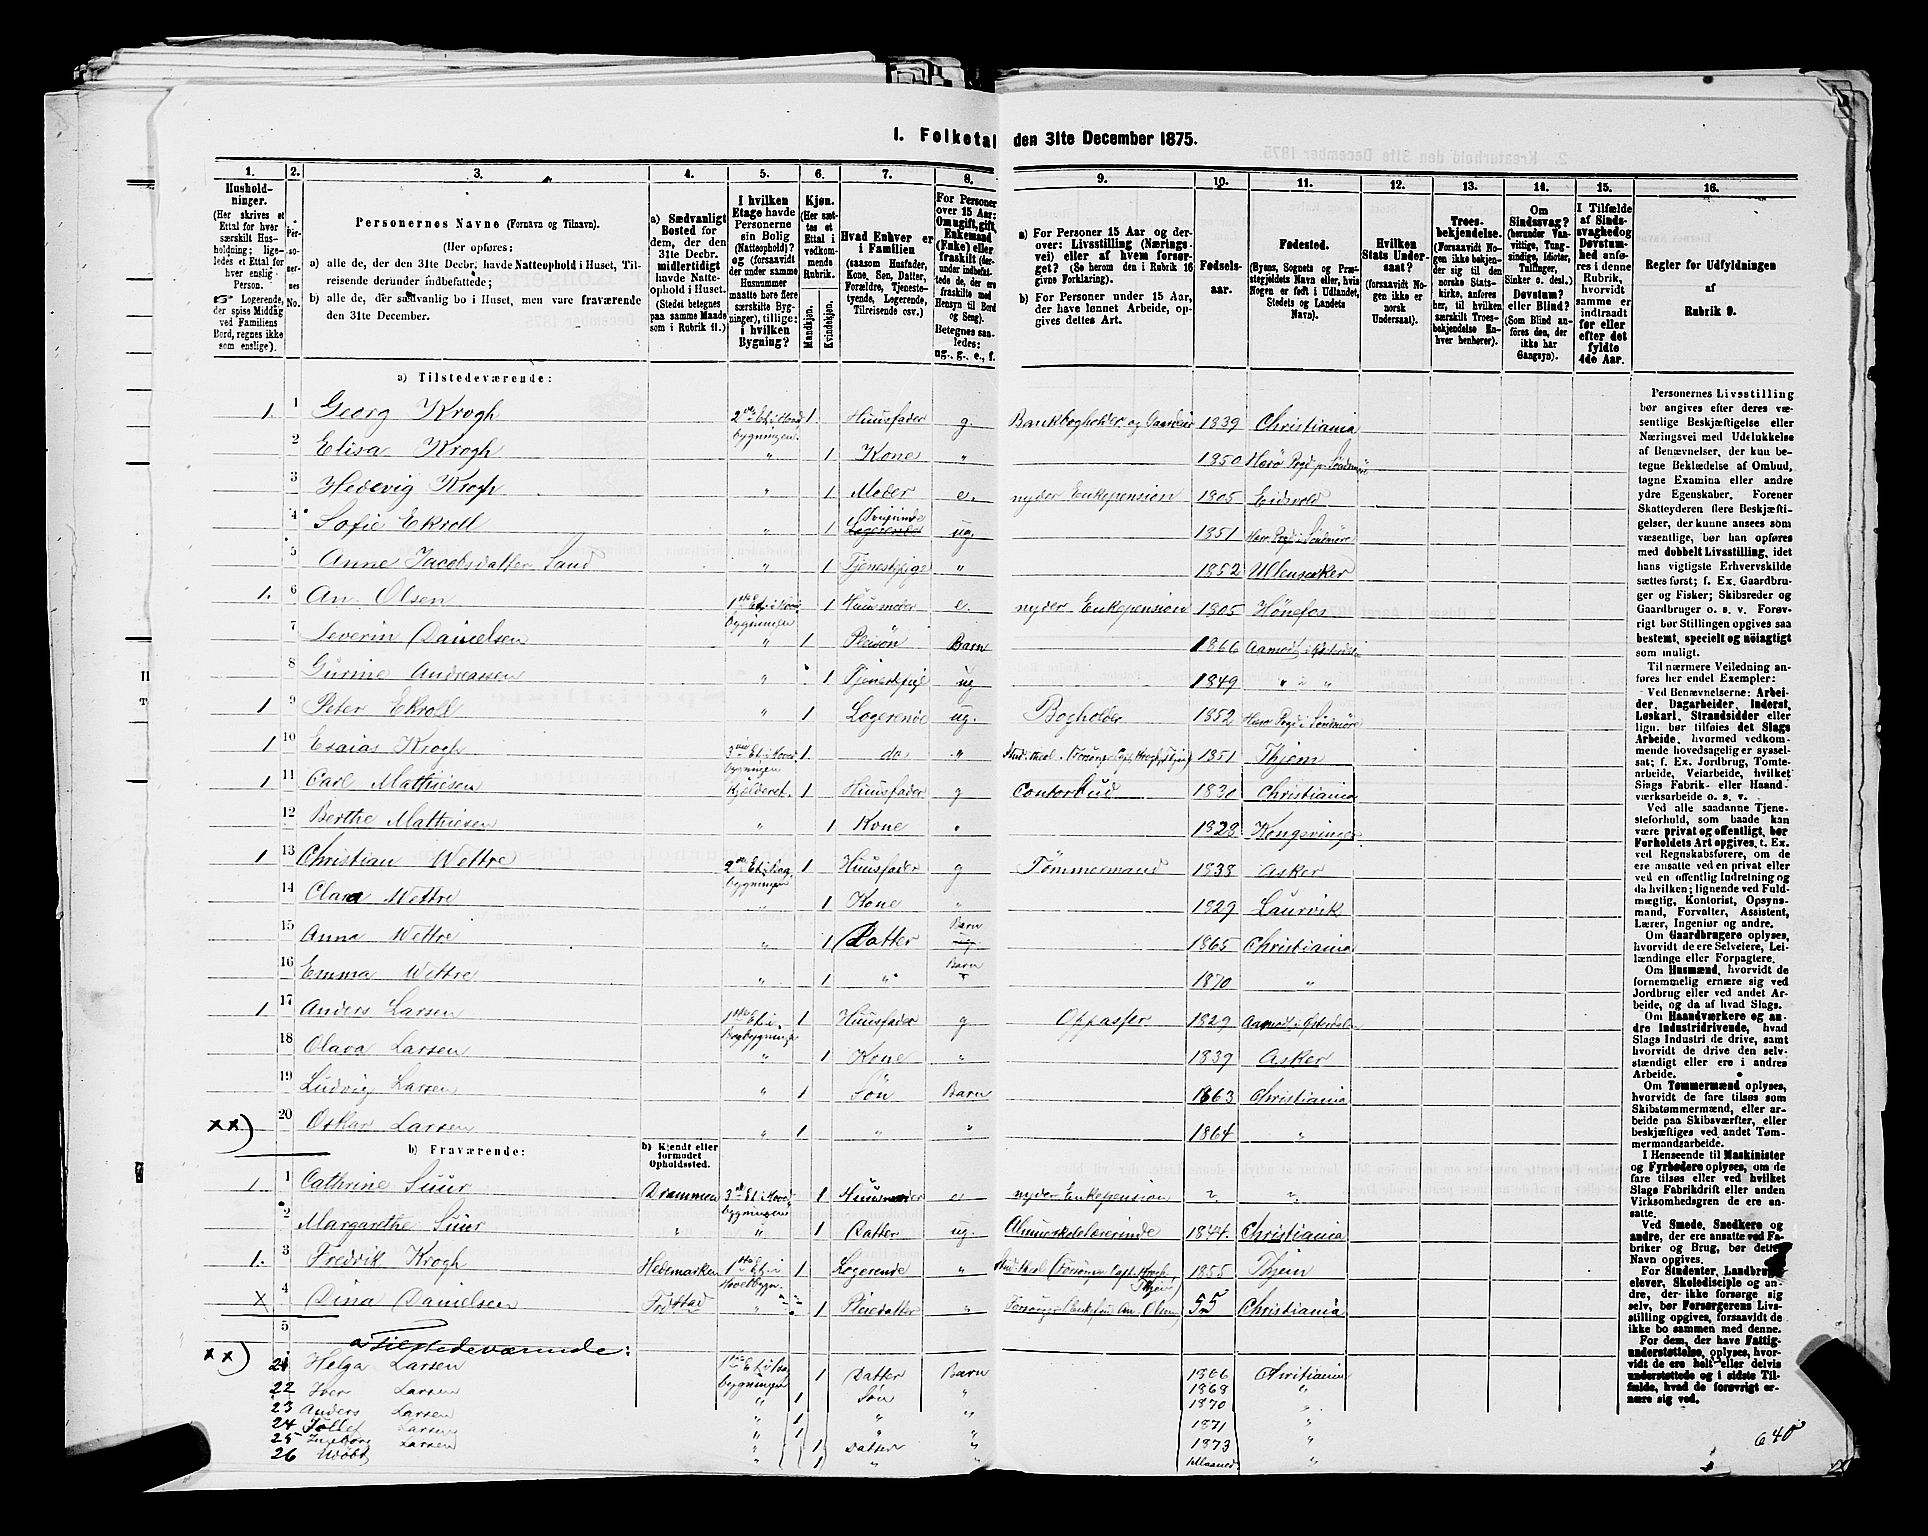 I. Folketal den 31te December 1875.
1. 2. 3. 4. 5. 6. 7. 8. 9. 10. 11. 12. 13. 14. 15. 16.
Husholdninger.
(Her skrives et Ettal for hver særskilt Husholdning; ligeledes et Ettal for hver enslig Person.
☞ Logerende, der spise Middag ved Familiens Bord, regnes ikke som enslige).
Personernes No.
Personernes Navne (Fornavn og Tilnavn).
(Her opføres:
a) alle de, der den 31te Decbr. havde Natteophold i Huset, Tilreisende derunder indbefattede;
b) alle de, der sædvanlig bo i Huset, men vare fraværende den 31te December.
a) Sædvanligt Bosted for dem, der den 31te Decbr. midlertidigt havde Natteophold i Huset. (Stedet betegnes paa samme Maade som i Rubrik 11.)
I hvilken Etage havde Personerne sin Bolig (Natteophold)? og (forsaavidt der under samme Husnummer maatte høre flere særskilte Bygninger), tillige: i hvilken Bygning?
Kjøn. (Her sættes et Ettal i vedkommende Rubrik.
Mandkjøn. Kvindekjøn.
Hvad Enhver er i Familien
(saasom Husfader, Kone, Søn, Datter, Forældre, Tjenestetyende, Logerende, Tilreisende osv.)
For Personer over 15 Aar: Om ugift, gift, Enkemand (Enke) eller fraskilt (herunder indbefattede de, der ere fraskilte med Hensyn til Bord og Seng). Betegnes saaledes: ug., g., e., f.
a) For Personer 15 Aar og derover: Livsstilling (Næringsvei) eller af hvem forsørget? (Se herom den i Rubrik 16 givne Forklaring).
b) For Personer under 15 Aar, der have lønnet Arbeide, opgives dettes Art.
Fødselsaar.
Fødested.
(Byens, Sognets og Præstegjeldets Navn eller, hvis Nogen er født i Udlandet, Stedets og Landets Navn).
Hvilken Stats Undersaat? (forsaavidt Nogen ikke er norsk Undersaat).
Troesbekjendelse. (Forsaavidt Nogen ikke bekjender sig til den norske Statskirke, anføres her, til hvilken særskilt Troesbekjendelse Enhver henhører).
Om Sindssvag? (herunder Vanvittige, Tungsindige, Idioter, Tullinger, Sinker o. desl.) Døvstum? eller Blind? (Som Blind anføres den, der ikke har Gangsyn).
I Tilfælde af Sindssvaghed og Døvstumhed anføres i denne Rubrik, hvorvidt samme er indtraadt før eller efter det fyldte 4de Aar.
Regler for Udfyldningen af Rubrik 9.
a) Tilstedeværende:
1. 1 Georg Krogh 2den Et. i Hovedbygningen. 1 Huusfader g. Bankbogholder og Gaardeier 1839 Christiania
2 Elisa Krogh " 1 Kone " 1850
3 Hedevig Krogh " 1 Moder e. nyder Enkepension 1805 Eidsvold
4 Sofie Ekroll " 1 ug. 1851
5 Anne Jacobsdatter Sand " 1 Tjenestpige " 1852 Ullensaker
1. 6 An. Olsen 1ste Et. i Hovedbygningen 1 Huusmoder e. nyder Enkepension 1805 Hönefos
7 Severin Danielsen " 1 Pleisön Barn 1866 Aamodt i Østerdalen
8 Gurine Andreassen " 1 Tjenestpige ug 1849 " " "
1 9 Peter Ekroll " 1 Logerende ug. Bogholder 1852 Herø Pregj i Söndmöre
1 10 Esaias Krogh 3die Et. i Hovedbygningen 1 do " 1851 Thjem
1 11 Carl Mathiesen Kjelderet. 1 Huusfader g Contorbud 1830 Christiania
12 Berthe Mathiesen " 1 Kone " 1828 Kongsvinger
1 13 Christian Wettre 2den Et. i Bagbygningen 1 Huusfader g Tömmermand 1838 Asker
14 Clara Wettre " 1 Kone " 1829 Laurvik
15 Anna Wettre " 1 Datter Barn 1865 Christiania
16 Emma Wettre " 1 " Barn 1870 "
1 17 Anders Larsen 1ste Et. i Bagbygningen 1 Huusfader g Oppasser 1829 Aamodt i Østerdalen
18 Olava Larsen " 1 Kone " 1839 Asker
19 Ludvig Larsen " 1 Sön Barn 1863 Christiania
××) 20 Oskar Larsen " 1 " " 1864 "
b) Fraværende:
b) Kjendt eller formodet Opholdssted.
1 1 Cathrine Suur Drammen 3die Et. i Hovedbygningen 1 Huusmoder e nyder Enkepension ? ?
2 Margarethe Suur " " 1 Datter ug. Almueskolelærerinde 1844. Christiania
1. 3 Fredrik Krogh Hedemarken 1ste Et. i Hovedbygn. 1 Logerende " 1855 Thjem
× 4 Dina Danielsen " 1 Pleiedatter " 55 Christiania
5
a Tilstedeværende:
××) 21 Helga Larsen 1ste Et. i Bagbygningen 1 Datter Barn 1866 Christiania
22 Iver Larsen " 1 Sön " 1868 "
23 Anders Larsen " 1 " " 1870 "
24 Tollef Larsen " 1 " " 1871
25 Ingeborg Larsen " 1 Datter " 1873 "
26 Udöbt " 1 " " "
Personernes Livsstilling bør angives efter deres væsentlige Beskjæftigelse eller Næringsvei med Udelukkelse af Benævnelser, der kun betegne Beklædelse af Ombud, tagne Examina eller andre ydre Egenskaber. Forener Skatteyderen flere Beskjæftigelser, der kunne ansees som væsentlige, bør han opføres med dobbelt Livsstilling, idet hans vigtigste Erhvervskilde sættes først; f. Ex. Gaardbruger og Fisker; Skibsreder og Gaardbruger o. s. v. Forøvrigt bør Stillingen opgives saa bestemt, specielt og nöiagtigt som muligt.
Til nærmere Veiledning anføres her endel Exempler:
Ved Benævnelserne: Arbeider, Dagarbeider, Inderst, Løskarl, Strandsidder eller lign. bør tilføies det Slags Arbeide, hvormed vedkommende hovedsagelig er sysselsat; f. Ex. Jordbrug, Tomtearbeide, Veiarbeide, hvilket Slags Fabrik- eller Haandværksarbeide o. s. v.
Ved alle saadanne Tjenesteforhold, som baade kan være privat og offentligt, bør Forholdets Art opgives, t. Ex. ved Regnskabsførere, om de ere ansatte ved en privat eller ved en offentlig Indretning og da hvilken; lignende ved Fuldmægtig, Kontorist, Opsynsmand, Forvalter, Assistent, Lærer, Ingeniør og andre.
Om Gaardbrugere oplyses, hvorvidt de ere Selveiere, Leilændinge eller Forpagtere.
Om Husmænd, hvorvidt de fornemmelig ernære sig ved Jordbrug eller ved andet Arbeide, og da af hvad Slags.
Om Haandværkere og andre Industridrivende, hvad Slags Industri de drive, samt hvorvidt de drive den selvstændigt eller ere i andres Arbeide.
Om Tømmermænd oplyses, hvorvidt de fare tilsøs som Skibstømmermænd, eller arbeide paa Skibsværfter, eller beskjæftiges ved andet Tømmermandsarbeide.
I Henseende til Maskinister og Fyrbødere oplyses, om de fare tilsøs eller ved hvilket Slags Fabrikdrift eller anden Virksomhedsgren de ere ansatte.
Ved Smede, Snedkere og andre, der ere ansatte ved Fabriker og Brug, bør dettes Navn opgives.
For Studenter, Landbrugselever, Skoledisciple og andre, der ikke forsørge sig selv, bør Forsørgerens Livsstilling opgives, forsaavidt de ikke bo sammen med denne.
For dem, der have Fattigunderstøttelse, oplyses, hvorvidt de ere helt eller delvis understøttede og i sidste Tilfælde, hvad de forøvrigt ernære sig ved.
640